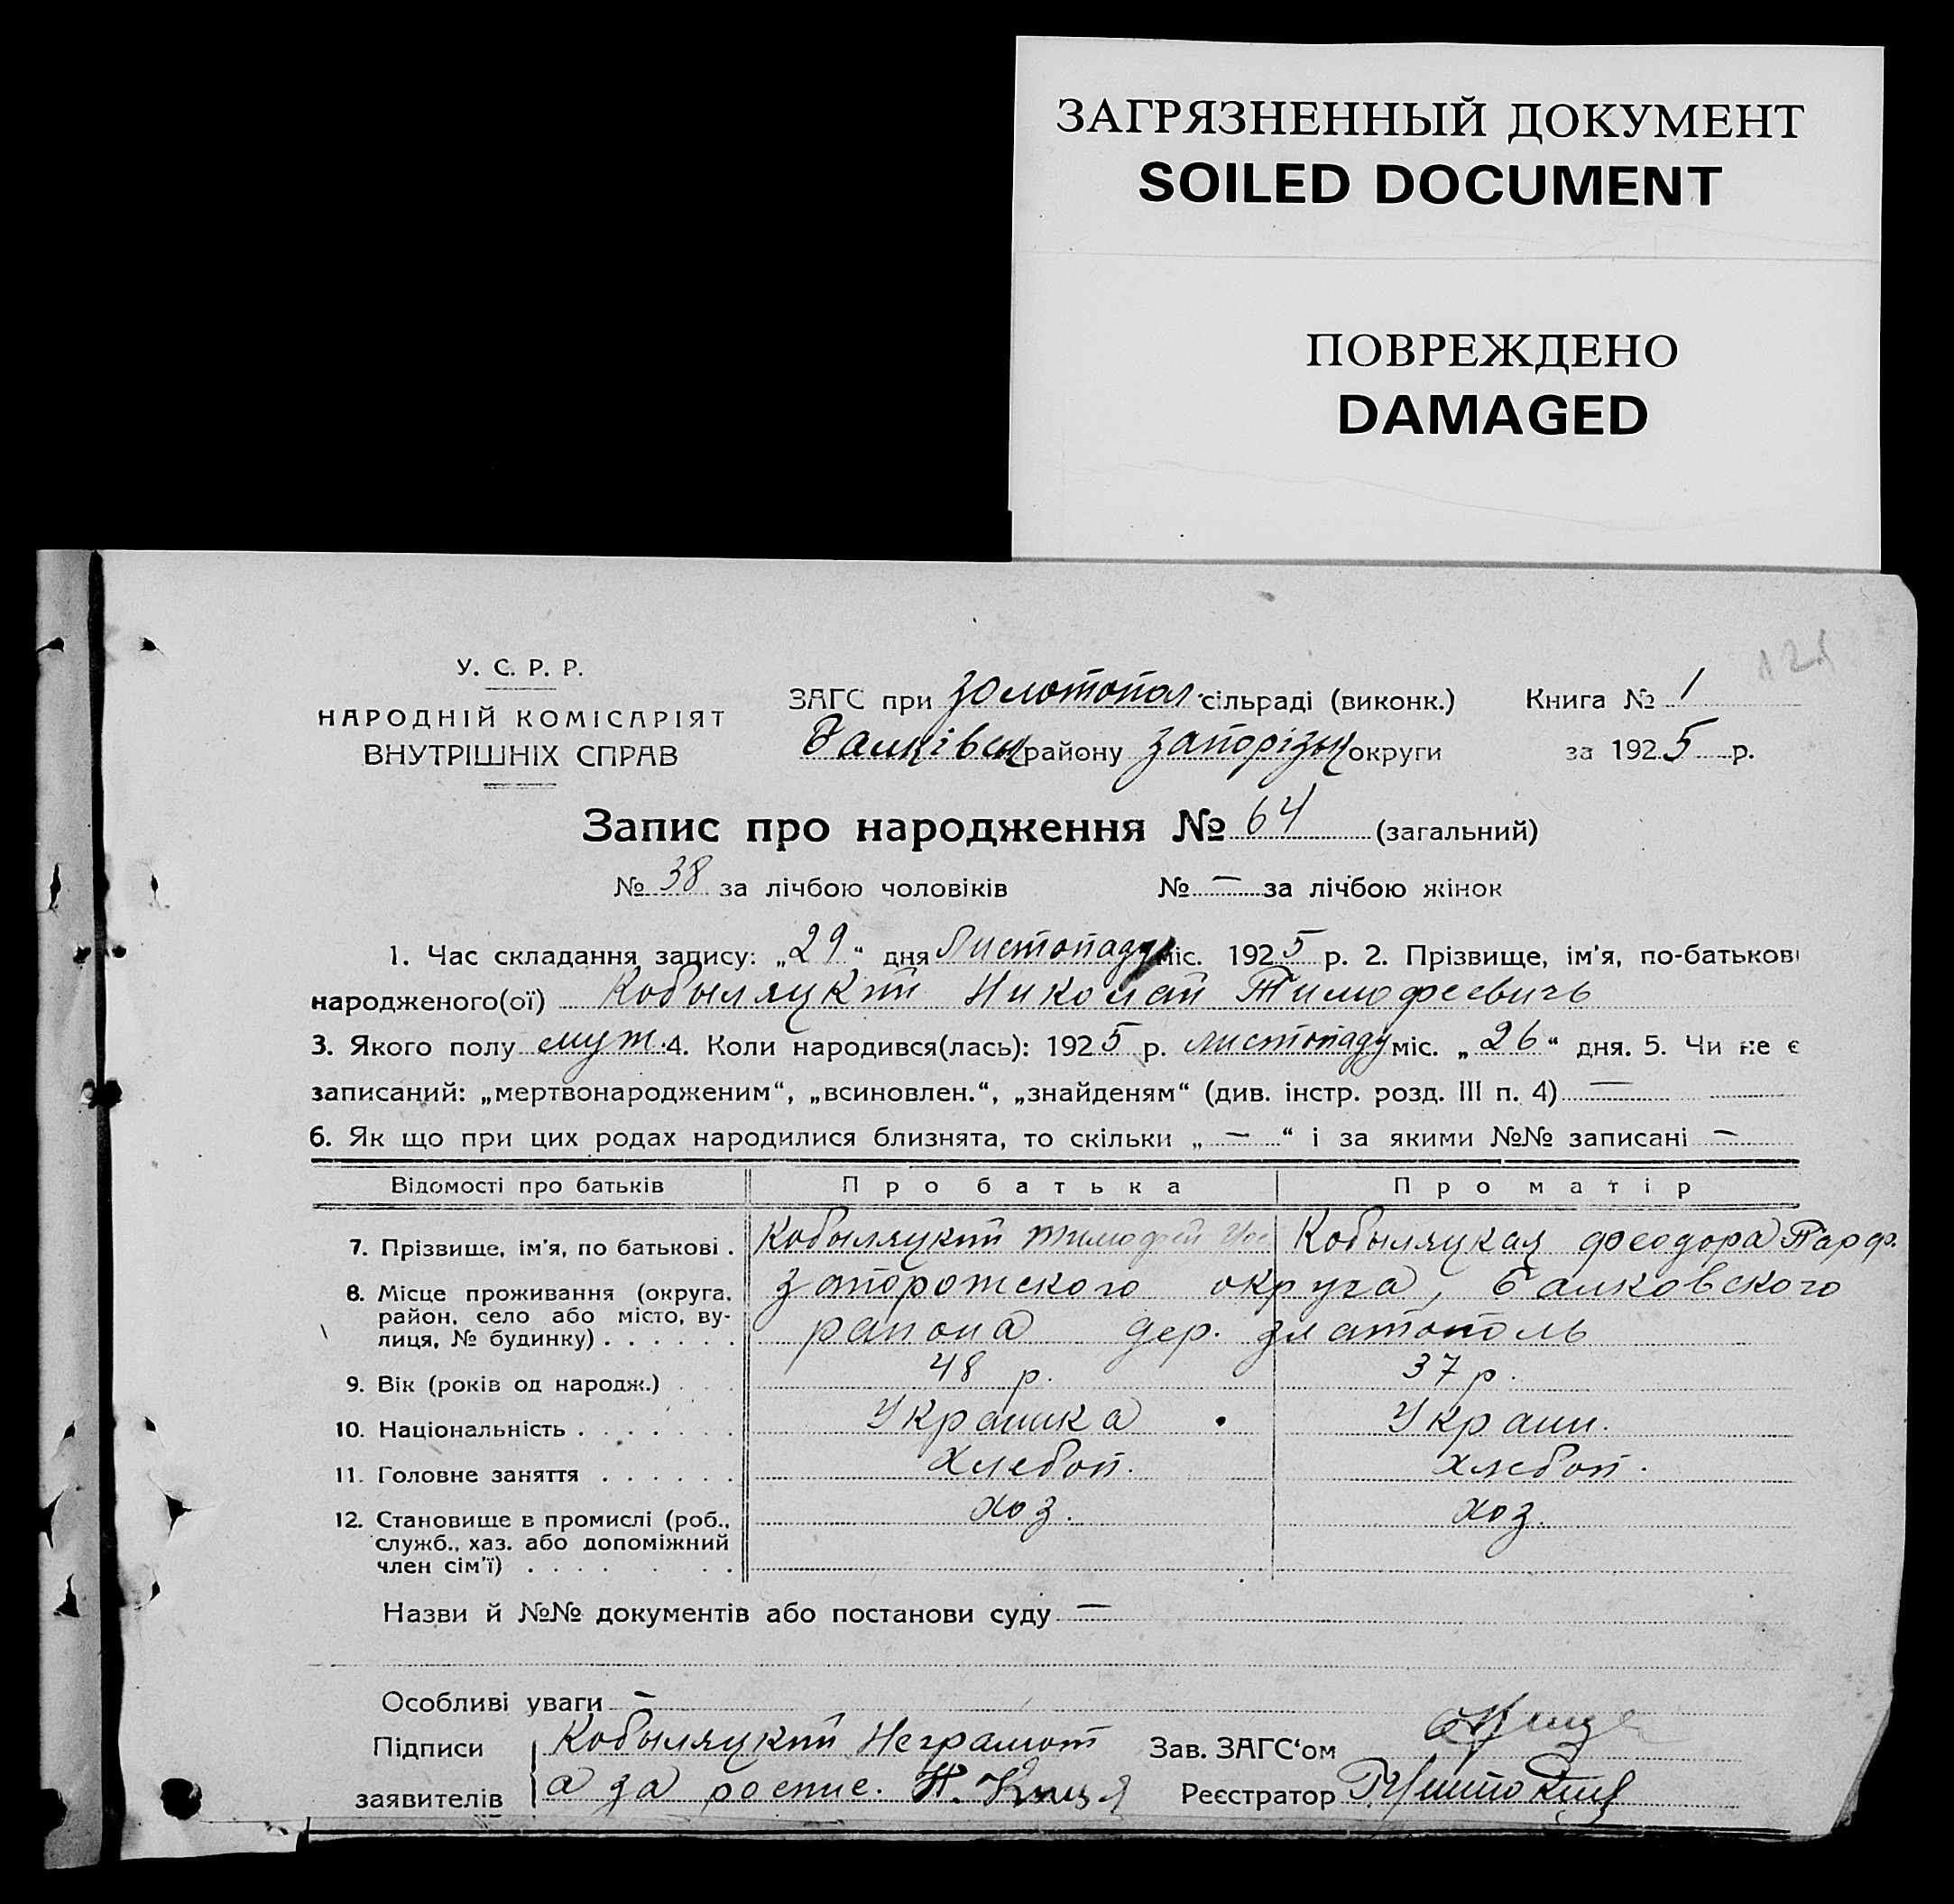 ЗАГРЯЗНЕННЫЙ ДОКУМЕНТ
SOILED DOCUMENT
ПОВРЕЖДЕНО
DAMAGED
У. С. Р. Р.
НАРОДНІЙ КОМІСАРІЯТ
ВНУТРІШНІХ СПРАВ
ЗАГС при Золотопол. сільраді (виконк.)
Балківськ району Запорізьк округи
Книга № 1
за 1925 р.
Запис про народження № 64 (загальний)
№ 38 за лічбою чоловіків № — за лічбою жінок
1. Час складання запису: „29“ дня Листопаду міс. 1925 р. 2. Прізвище, ім'я, по-батькові
народженого(ої) Кобыляцкий Николай Тимофеевичь
3. Якого полу муж. 4. Коли народився(лась): 1925 р. листопаду міс. „26“ дня. 5. Чи не є
записаний: „мертвонародженим“, „всиновлен.“, „знайденям“ (див. інстр. розд. III п. 4) —
6. Як що при цих родах народилися близнята, то скільки „—“ і за якими №№ записані —
Відомості про батьків Про батька Про матір
7. Прізвище, ім'я, по батькові . Кобыляцкий Тимофей Кобыляцкая Феодора Парф.
8. Місце проживання (округа, район, село або місто, ву-лиця, № будинку) . . . . . . Запорожского округа, Балковского
района дер. Златополь
9. Вік (років од народж.) . . . 48 р. 37 р.
10. Національність . . . . . . . Украинка Украин.
11. Головне заняття . . . . . . Хлебоп. хлебоп.
12. Становище в промислі (роб., хоз. хоз.
служб., хаз. або допоміжний
член сім'ї) . . . . . . .
Назви й №№ документів або постанови суду —
Особливі уваги —
Підписи Кобыляцкий Неграмот Зав. ЗАГС'ом
заявителів а за роспис. Н. Реєстратор